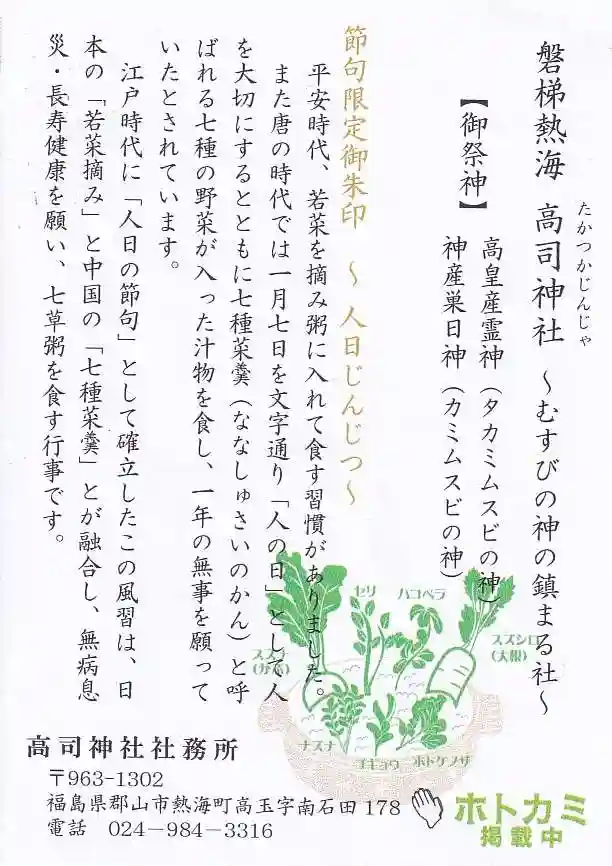 たかつかじんじゃ
磐梯熱海 高司神社 ～むすびの神の鎮まる社～
【御祭神】
高皇産霊神(タカミムスビの神)
神産巣日神(カミムスビの神)
節句限定御朱印 ～人日じんじつ～
平安時代、若菜を摘み粥に入れて食す習慣がありました。
また唐の時代では一月七日を文字通り「人の日」として人
を大切にするとともに七種菜羹(ななしゅさいのかん)と呼
ばれる七種の野菜が入った汁物を食し、一年の無事を願って
いたとされています。
江戸時代に「人日の節句」として確立したこの風習は、日
本の「若菜摘み」と中国の「七種菜羹」とが融合し、無病息
災・長寿健康を願い、七草粥を食す行事です。
セリ
ハコベラ
スズシロ
(大根)
スズナ
(かぶ)
ナズナ
ゴギョウ
ホトケノザ
高司神社社務所
〒963-1302
福島県郡山市熱海町高玉字南石田178
電話 024-984-3316
ホトカミ
掲載中